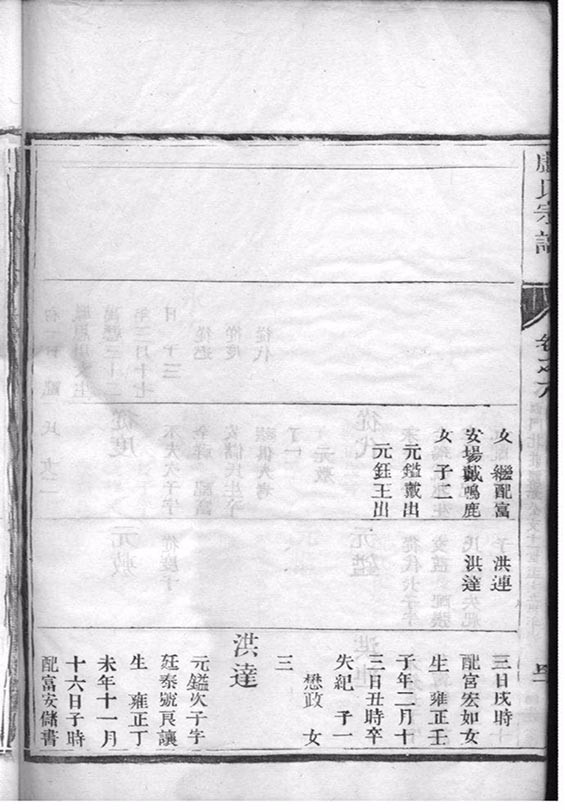 盧氏宗譜
卷之六
女繼配富
安場戴鳴鹿
女子二
元鎰戴出
元鈺王出
子洪連
洪達
三日戌時
配宮宏如女
生雍正壬
子年二月十
三日丑時卒
失紀子一
懋政女
三
洪達
元鎰次子字
廷泰號良讓
生雍正丁
未年十一月
十六日子時
配富安儲書